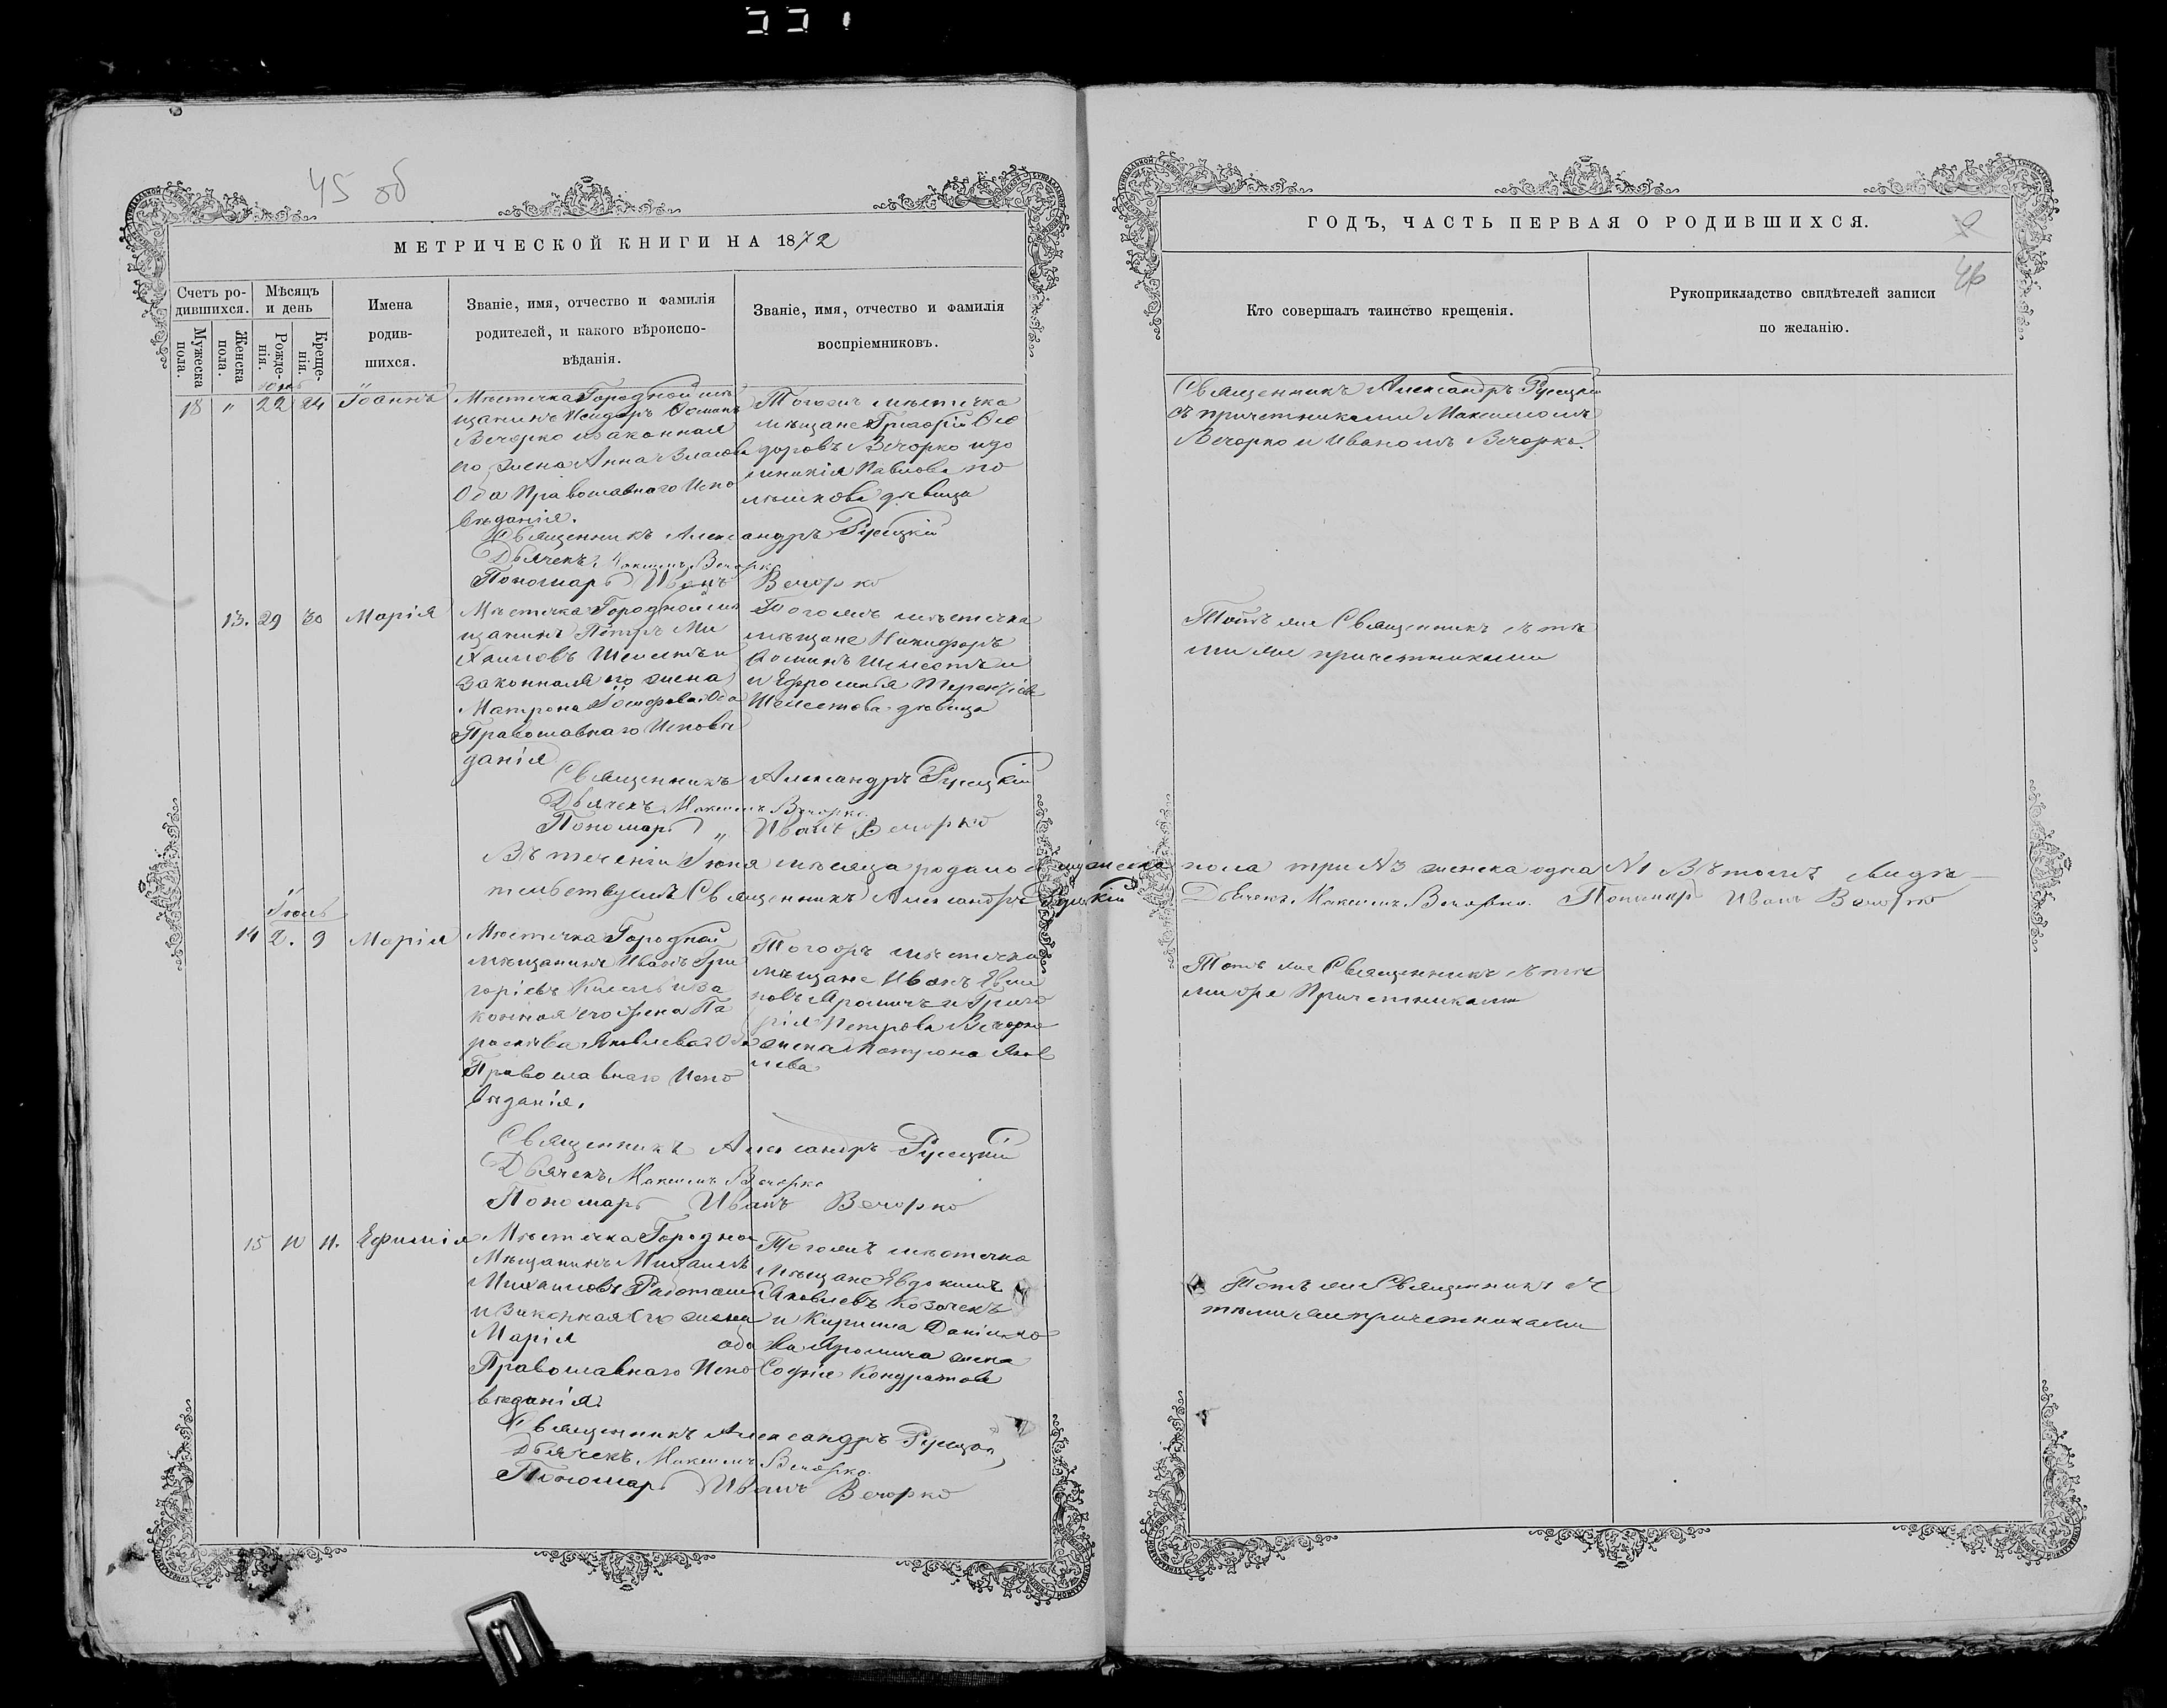 45 об
МЕТРИЧЕСКОЙ КНИГИ НА 1872
Счетъ ро-
дившихся.
Мужеска
пола.
Женска
пола.
Мѣсяцъ
и день
Рожде-
нія.
Креще-
нія.
Имена
родив-
шихся.
Званіе, имя, отчество и фамилія
родителей, и какого вѣроиспо-
вѣданія.
Званіе, имя, отчество и фамилія
воспріемниковъ.
ГОДЪ, ЧАСТЬ ПЕРВАЯ О РОДИВШИХСЯ.
46
Кто совершалъ таинство крещенія.
Рукоприкладство свидѣтелей записи
по желанію.
18 " 22 24 Іоаннъ
Мѣстечка Городной мѣ
щанинъ Исидоръ Ѳоминъ
Вечорко и законная
его жена Анна Власова
Оба Православнаго Испо
вѣданія.
Тогожъ мѣстечка
мѣщане Григорій Ѳео
доровъ Вечорко и
Павлова
дѣвица
Священникъ Александръ Русецкій
съ причетниками Максимомъ
Вечорко и Иваномъ Вечорко.
Священникъ Александръ Русецкій
Дьячекъ Максимъ Вечорко
Пономарь Иванъ Вечорко
13. 29 30 Марія
Мѣстечка Городной мѣ
щанинъ Петръ Ми
хаиловъ Шеметъ и
законная его жена
Матрона Іосифова Оба
Православнаго Исповѣ
данія
Тогожъ мѣстечка
мѣщане Никифоръ
Ѳоминъ Шеметъ и
и Ефросинія Терентіева
Шеметова дѣвица
Тотъ же Священникъ съ тѣ
ми же причетниками
Священникъ Александръ Русецкій
Дьячекъ Максимъ Вечорко.
Пономарь " Иванъ Вечорко
Въ теченіи Іюня мѣсяца родилось мужеска пола три №3 женска одна №1 Въ томъ свидѣ-
тельствуемъ Священникъ Александръ Русецкій Дьячекъ Максимъ Вечорко. Пономарь Иванъ Вечорко
Іюль
14 2. 9 Марія
Мѣстечка Городной
мѣщанинъ Иванъ Гри
горіевъ и за
конная его жена Па
раскева Яковлева Оба
Православнаго Испо
вѣданія.
Тогожъ мѣстечка
мѣщане Иванъ
и Григо
рія Петрова Вечорко
жена Матрона Яков
лева
Тотъ же Священникъ съ тѣ
ми же Причетниками
Священникъ Александръ Русецкій
Дьячекъ Максимъ Вечорко
Пономарь Иванъ Вечорко
15 10 11. Ефимія
Мѣстечка Городной
Мѣщанинъ Михаилъ
Михаиловъ
и Законная его жена
Марія оба
Православнаго Испо
вѣданія.
Тогожъ мѣстечка
Мѣщане Евдокимъ
Яковлевъ Козачекъ
и Кирилла
жена
Софія Кондратова
Тотъ же Священникъ съ
тѣми же причетниками
Священникъ Александръ Русецкій
Дьячекъ Максимъ Вечорко.
Пономарь Иванъ Вечорко